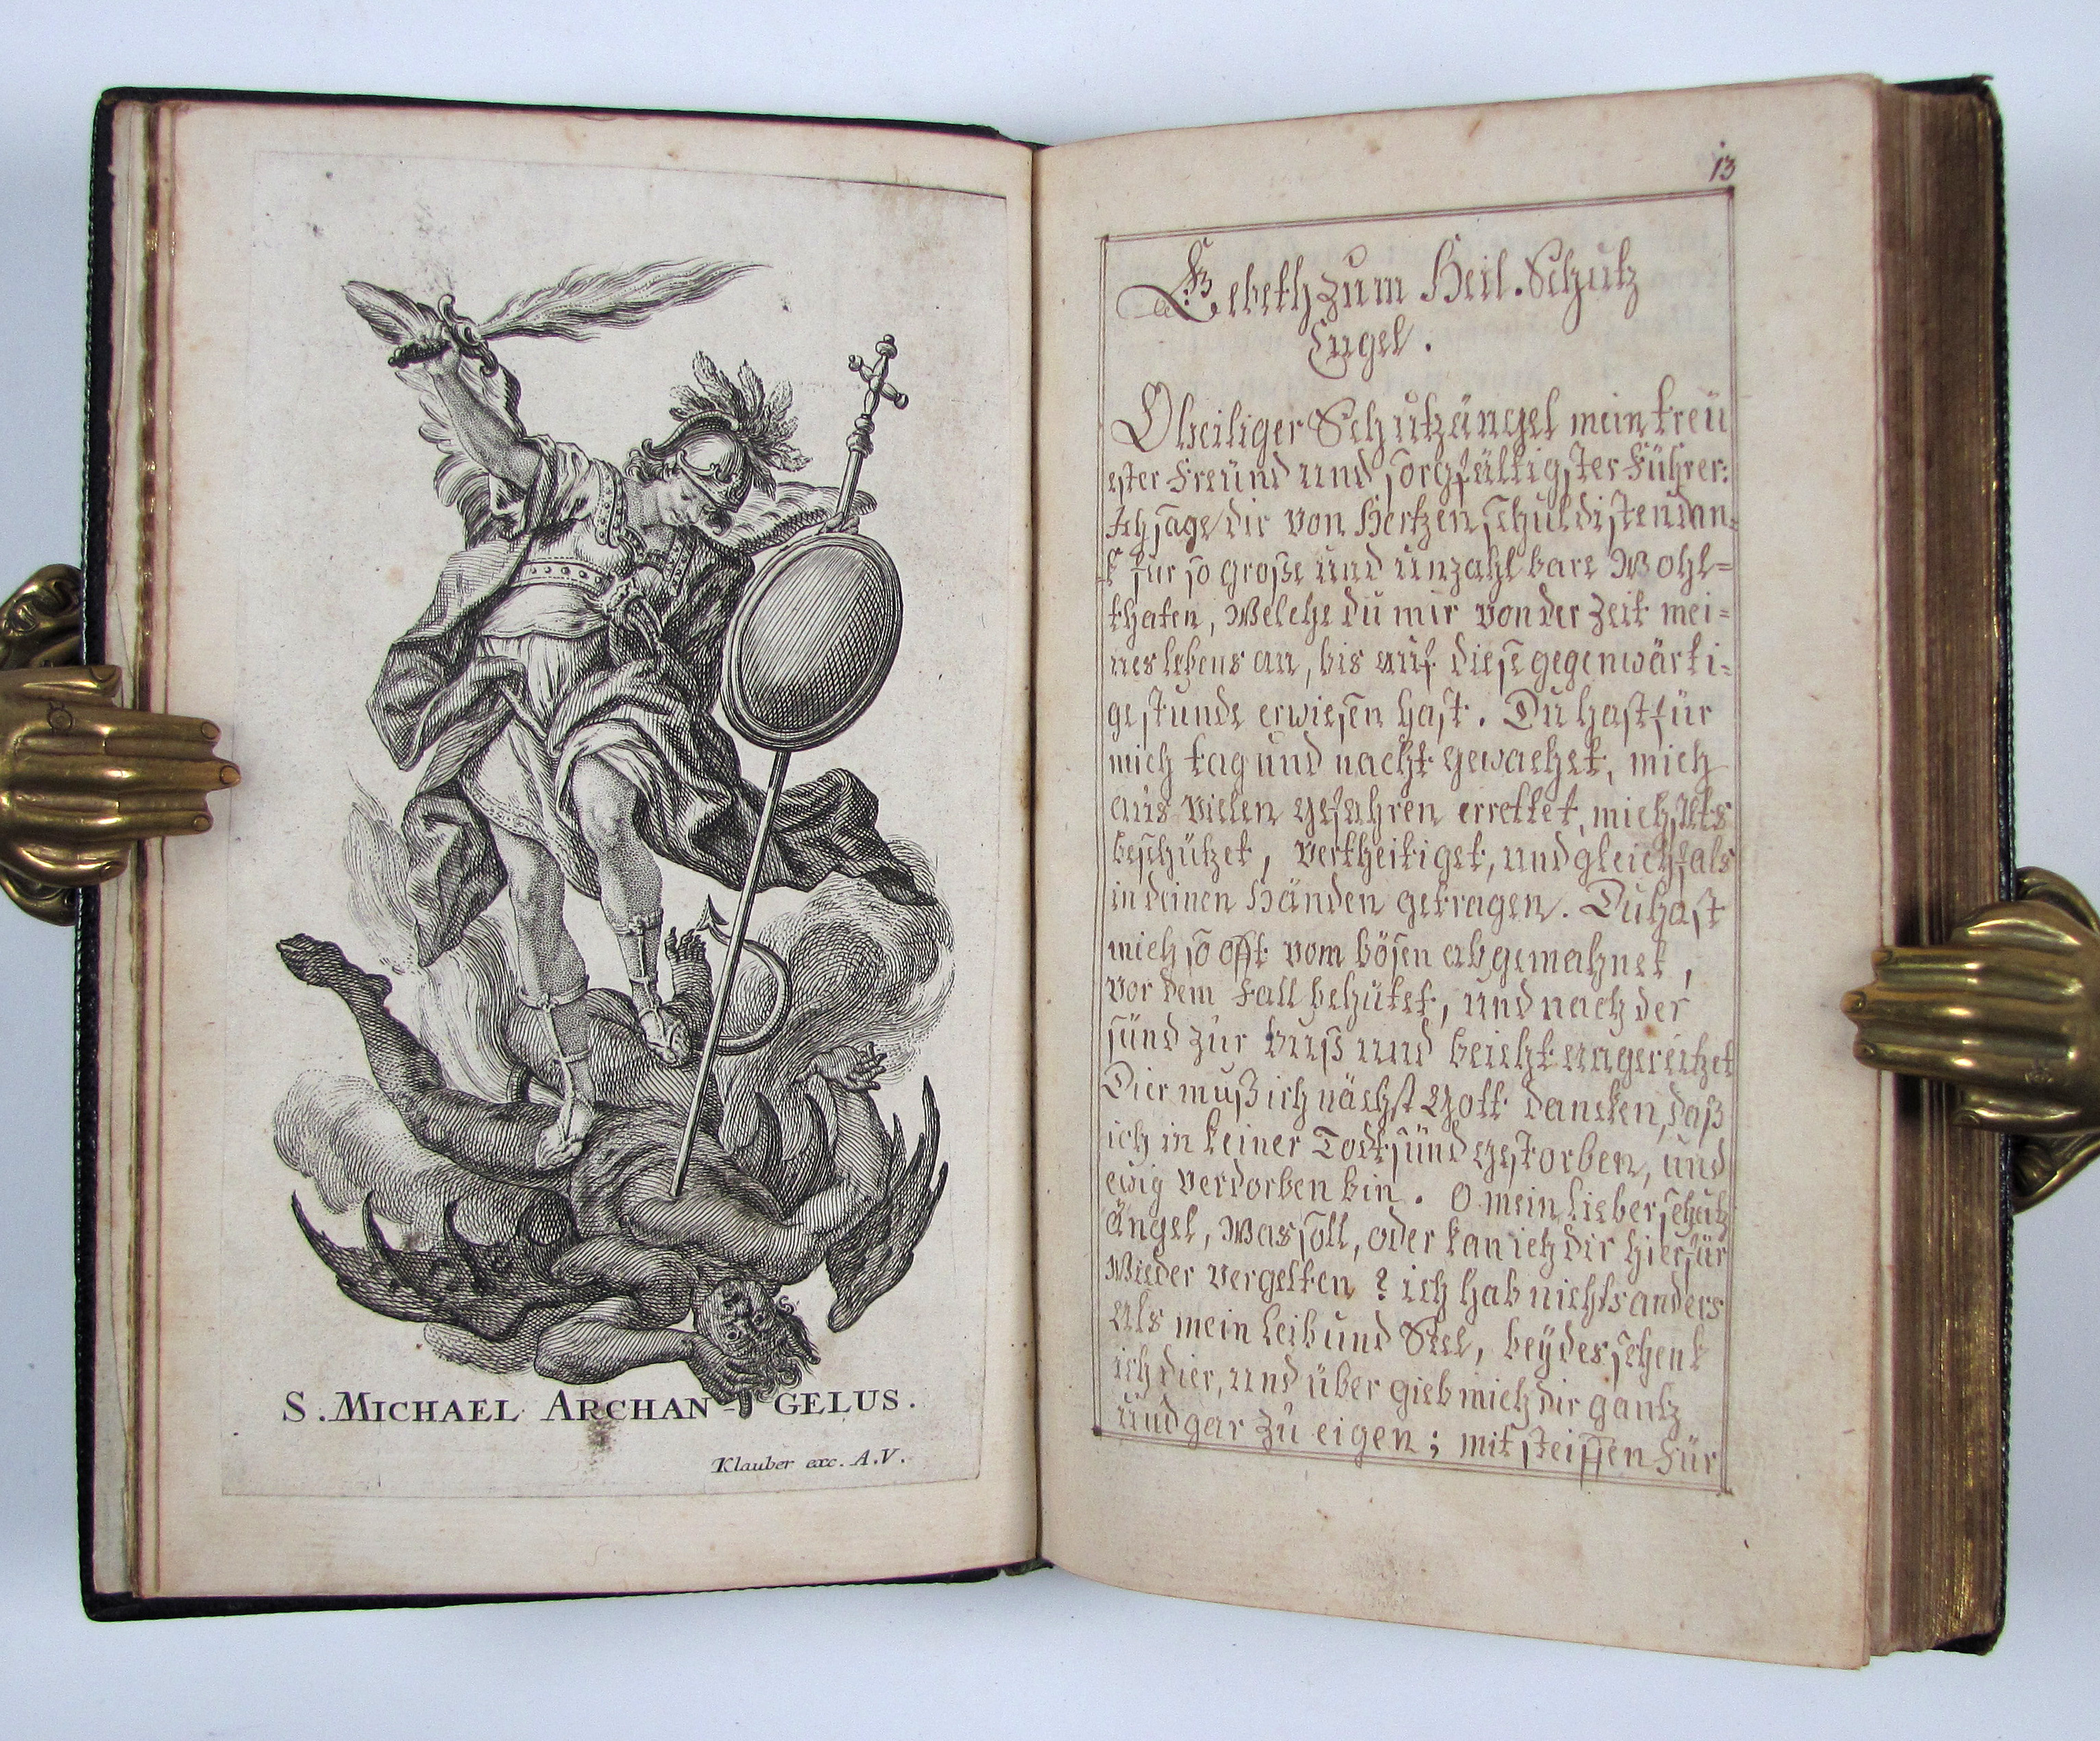 S. MICHAEL ARCHAN- GELUS.
Klauber exc. A.V.
13
Gebeth zum Heil. Schutz
Engel.
O heiliger Schutzängel mein treü
ester Freünd und sorgfältigster Führer:
Ich sage dir von Hertzen schuldisten dan=
k für so große und unzahlbare Wohl=
thaten, Welche du mir von der Zeit mei=
nes lebens an, bis auf diese gegenwärti=
ge stunde erwiesen hast. Du hast für
mich tag und nacht gewachet, mich
aus vielen gefahren errettet, mich stets
beschützet, vertheitiget, und gleichsals
in deinen Händen getragen. Du hast
mich so offt vom bösen abgemahnet,
vor dem Fall behütet, und nach der
sünd zur buß und beicht angereitzet
Dier muß ich nächst Gott dancken, daß
ich in keiner Todtsünd gestorben, und
ewig verdorben bin. O mein lieber schutz
ängel, was soll, oder kan ich dir hierfür
wieder vergelten? ich hab nichts anders
als mein leib und Seel, beydes schenk
ich dier, und über gieb mich dir gantz
und gar zu eigen; mit steiffen Für